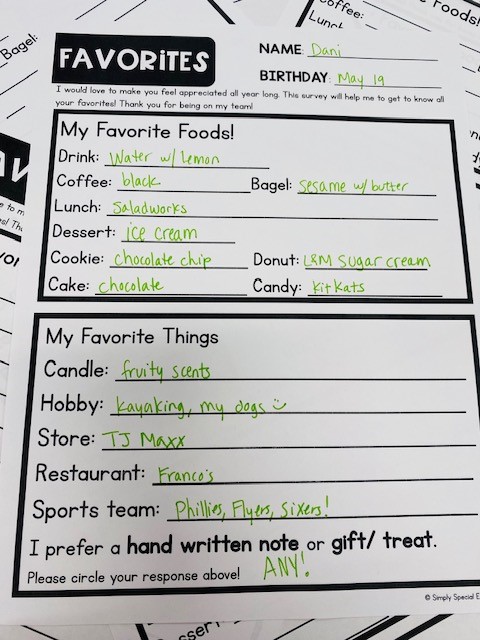 Coffee:
Lunch
Bagel:
FAVORITES
NAME: Dani
BIRTHDAY: May 19
I would love to make you feel appreciated all year long. This survey will help me to get to know all
your favorites! Thank you for being on my team!
My Favorite Foods!
Drink: Water w/ Lemon
Coffee: black Bagel: sesame w/ butter
Lunch: Saladworks
Dessert: ice cream
Cookie: chocolate chip Donut: L&M sugar cream
Cake: chocolate Candy: KitKats
My Favorite Things
Candle: fruity scents
Hobby: kayaking, my dogs
Store: TJ Maxx
Restaurant: Franco's
Sports team: Phillies, Flyers, Sixers!
I prefer a hand written note or gift/ treat.
Please circle your response above! ANY!
© Simply Special E